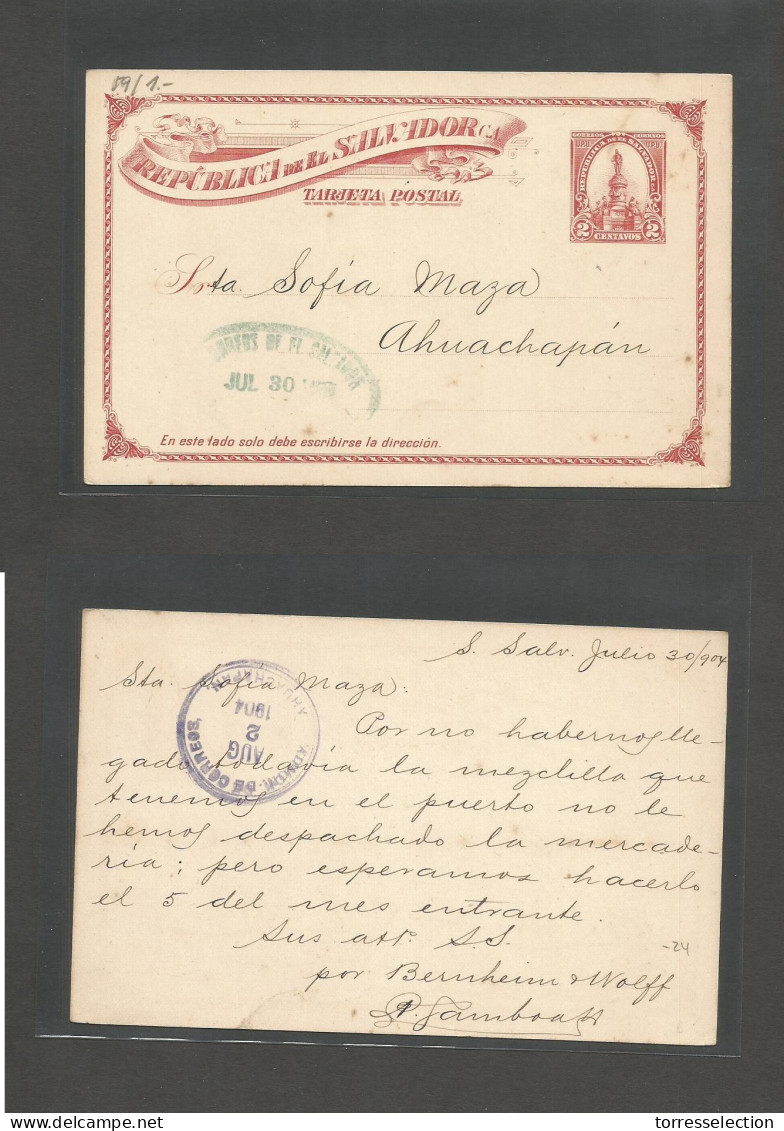 59/1.-
REPÚBLICA DE EL SALVADOR C.A.
TARJETA POSTAL
CORREOS CORREOS
REPUBLICA DE EL SALVADOR
2 CENTAVOS 2
Srta. Sofía Maza
Ahuachapán
CORREOS DE EL SALVADOR
JUL 30
En este lado solo debe escribirse la dirección.
S. Salv. Julio 30/904
Sta. Sofía Maza:
AHUACHAPAN
1904
2
AUG
DE CORREOS,
Por no habernos lle-
gado todavía la mezclilla que
tenemos en el puerto no le
hemos despachado la mercade-
ría; pero esperamos hacerlo
el 5 del mes entrante.
Sus att. S.S.
-24
por Bernheim & Wolff
torresselection